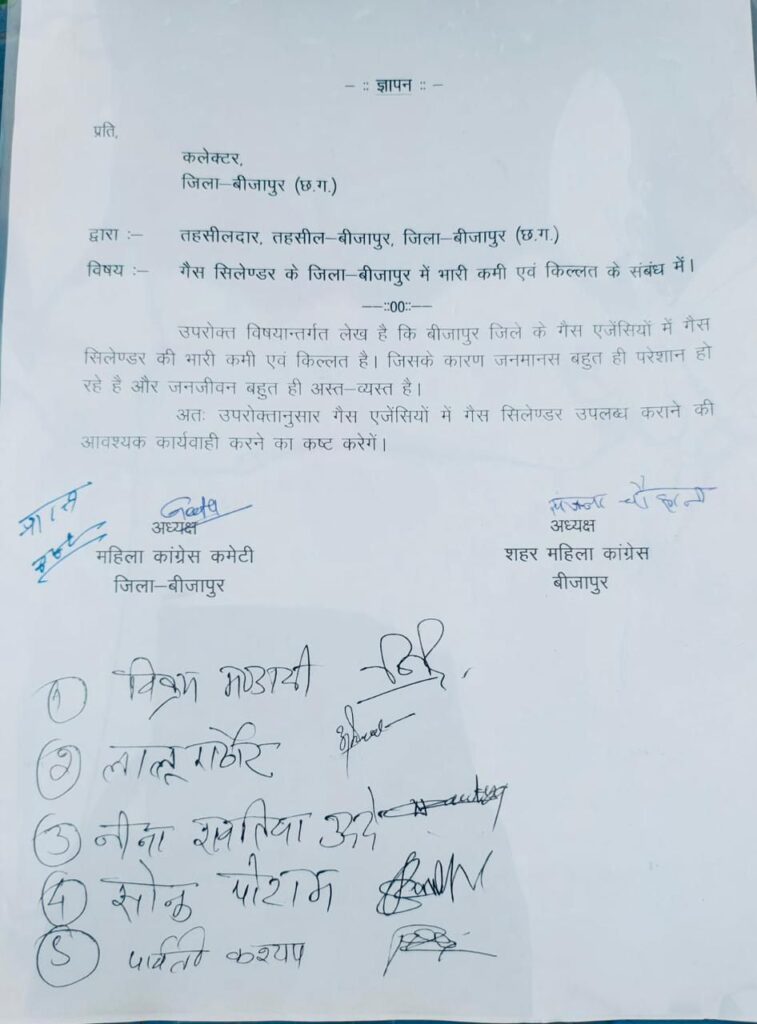 – :: ज्ञापन :: –
प्रति,
कलेक्टर,
जिला–बीजापुर (छ.ग.)
द्वारा :– तहसीलदार, तहसील–बीजापुर, जिला–बीजापुर (छ.ग.)
विषय :– गैस सिलेण्डर के जिला–बीजापुर में भारी कमी एवं किल्लत के संबंध में।
––::00::––
उपरोक्त विषयान्तर्गत लेख है कि बीजापुर जिले के गैस एजेंसियों में गैस
सिलेण्डर की भारी कमी एवं किल्लत है। जिसके कारण जनमानस बहुत ही परेशान हो
रहे है और जनजीवन बहुत ही अस्त–व्यस्त है।
अतः उपरोक्तानुसार गैस एजेंसियों में गैस सिलेण्डर उपलब्ध कराने की
आवश्यक कार्यवाही करने का कष्ट करेगें।
Geeta
अध्यक्ष
महिला कांग्रेस कमेटी
जिला–बीजापुर
चौहान
अध्यक्ष
शहर महिला कांग्रेस
बीजापुर
1 विक्रम मण्डावी
2 लालू राठौर
3 नीना
4 सोनू पोटाम
5 पार्वती कश्यप